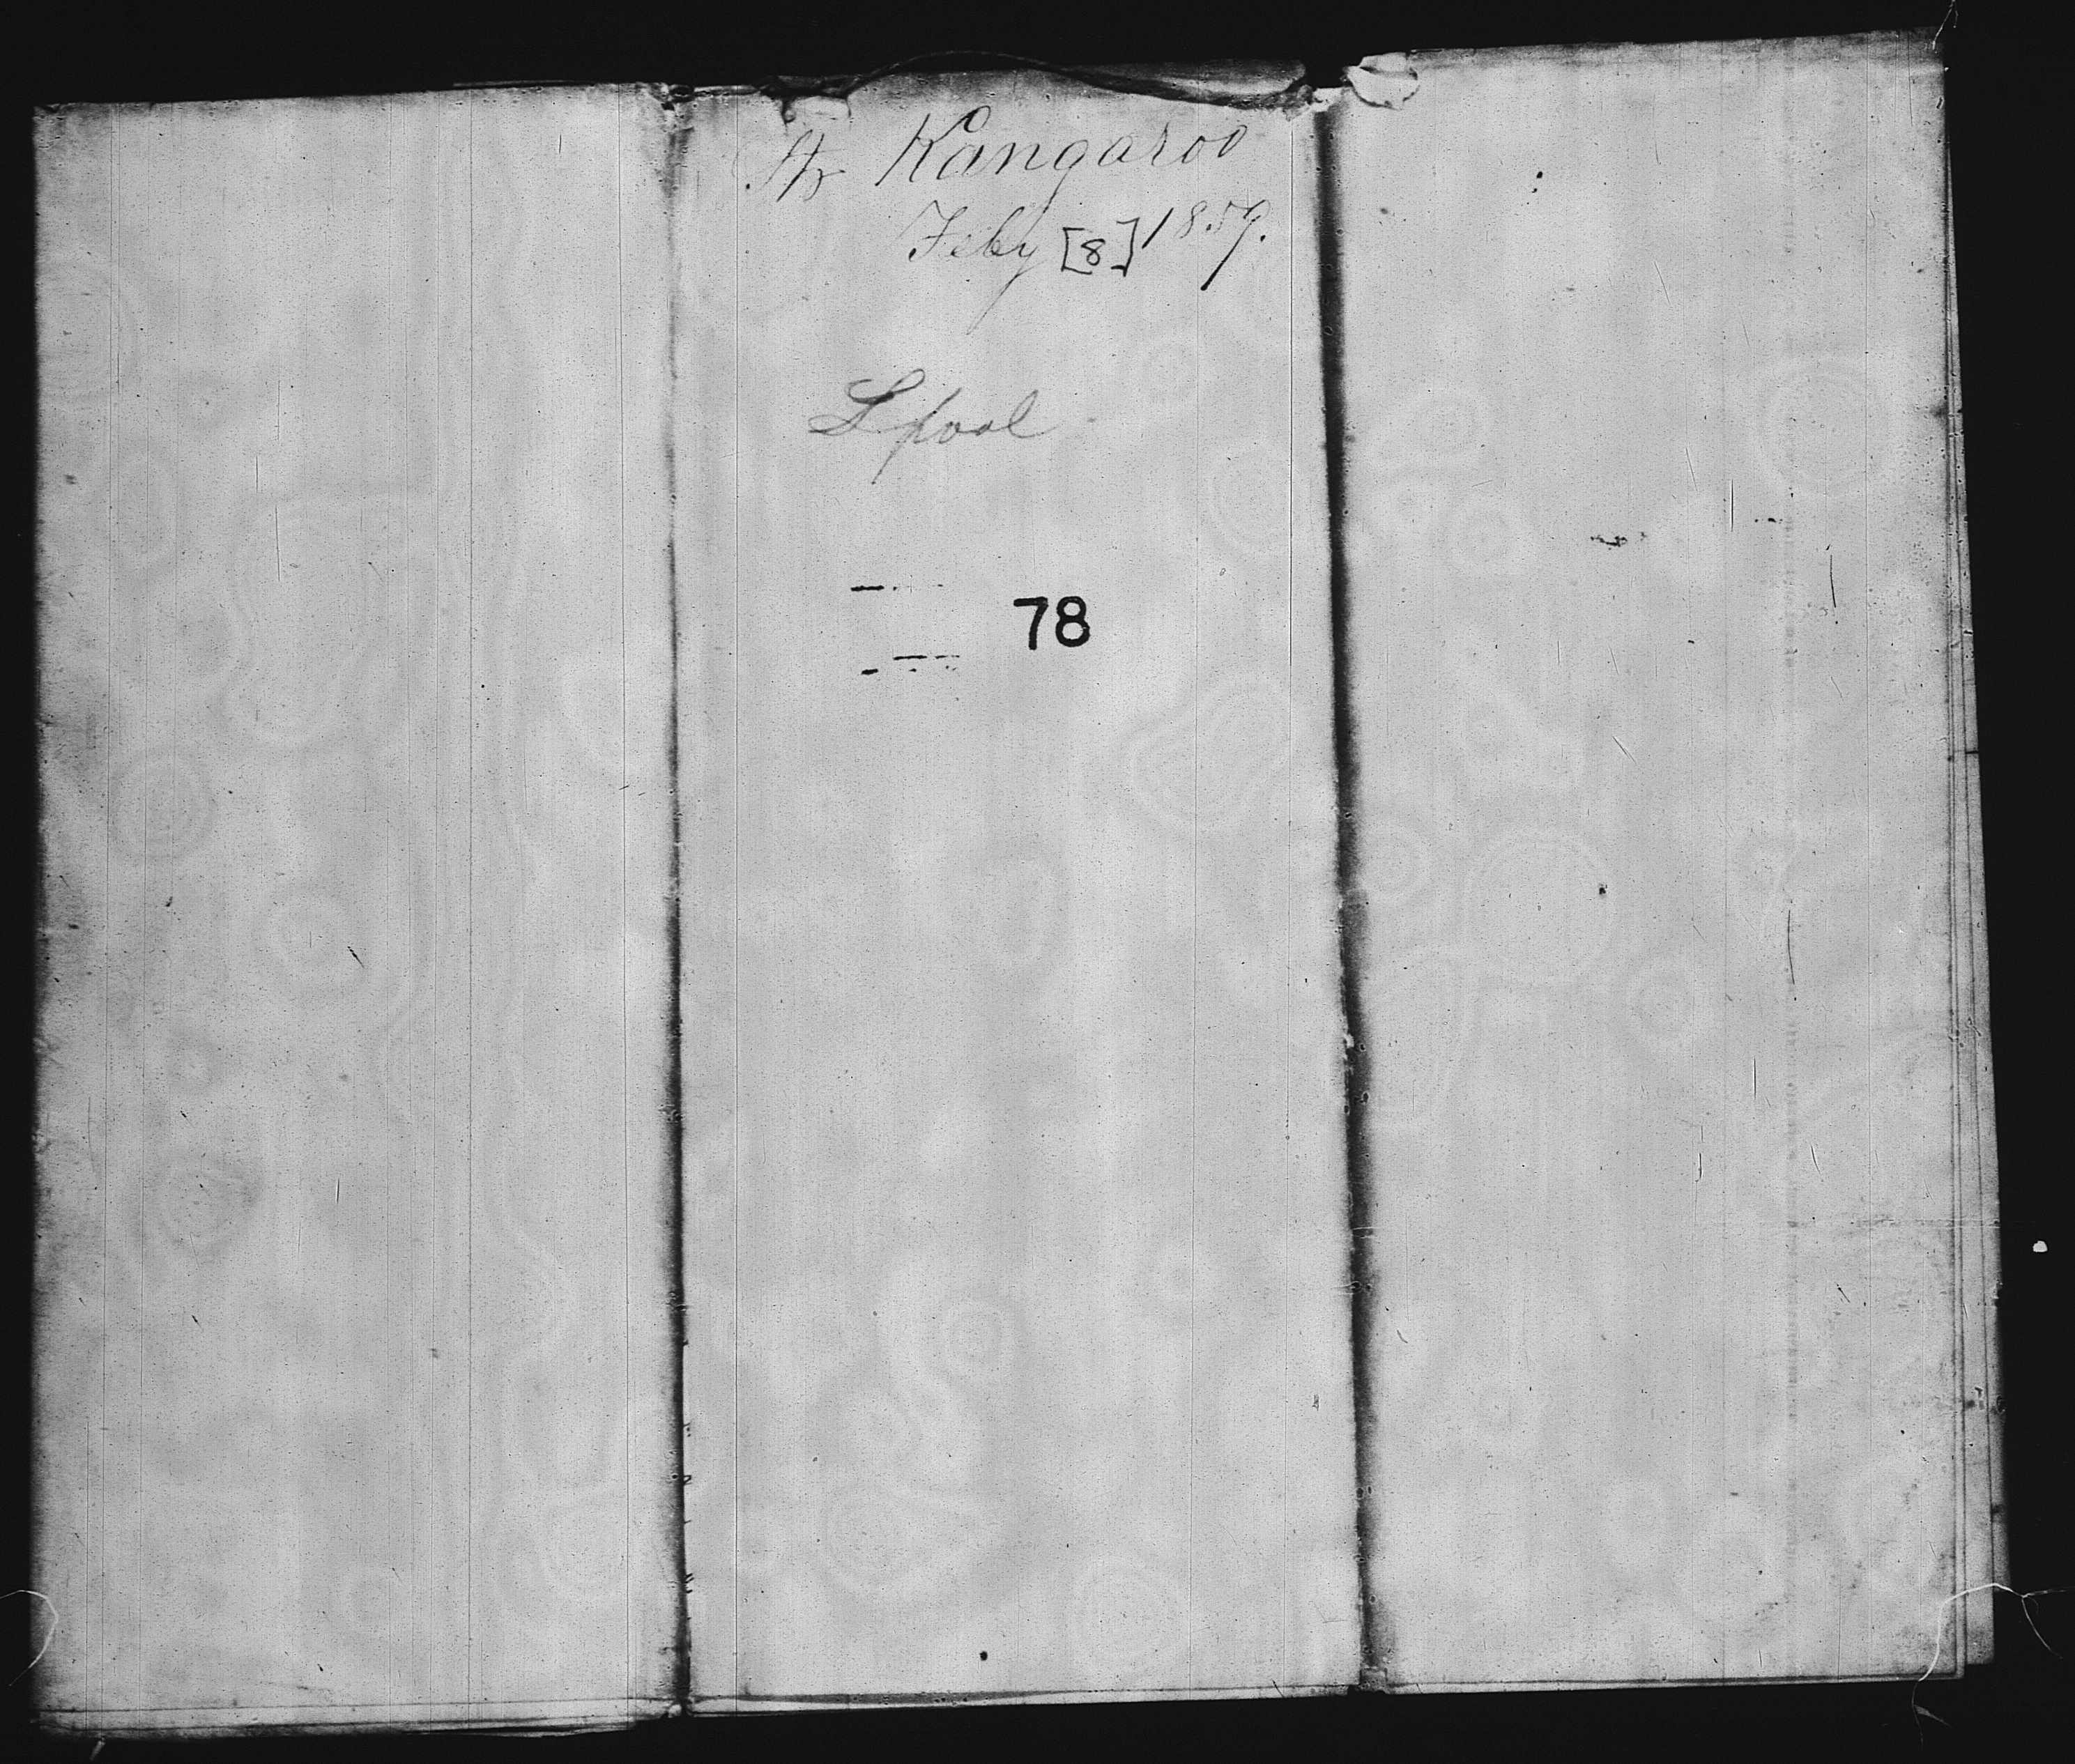 Str Kangaroo
Feby [8] 1859.
L pool
78